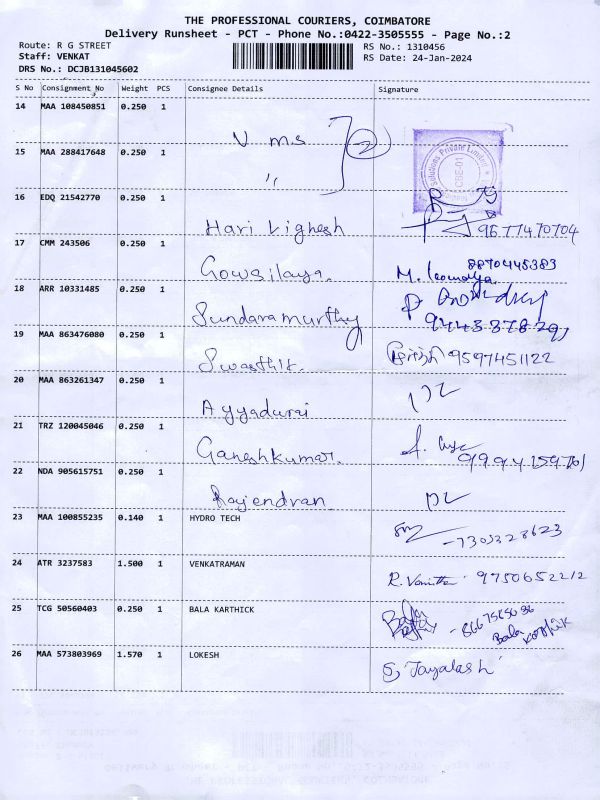 THE PROFESSIONAL COURIERS, COIMBATORE
Delivery Runsheet - PCT - Phone No.:0422-3505555 - Page No.:2
Route: R G STREET
Staff: VENKAT
DRS No.: DCJB131045602
RS No.: 1310456
RS Date: 24-Jan-2024
S No Consignment No Weight PCS Consignee Details Signature
14 MAA 108450851 0.250 1 V ms
2
15 MAA 288417648 0.250 1 "
Solutions Private Limited
CBE-01
16 EDQ 21542770 0.250 1 Hari Vighesh 9677470704
17 CMM 243506 0.250 1 Gowsilaya. M. 8870445383
18 ARR 10331485 0.250 1 Sundaramurthy P
19 MAA 863476080 0.250 1 Swasthik. 9597451122
20 MAA 863261347 0.250 1 Ayyadurai
21 TRZ 120045046 0.250 1 Ganeshkumar.
22 NDA 905615751 0.250 1 Rajendran
23 MAA 100855235 0.140 1 HYDRO TECH - 7305328623
24 ATR 3237583 1.500 1 VENKATRAMAN R. Vanitha 9750652212
25 TCG 50560403 0.250 1 BALA KARTHICK
Bala Karthik
26 MAA 573803969 1.570 1 LOKESH S, Jayalash